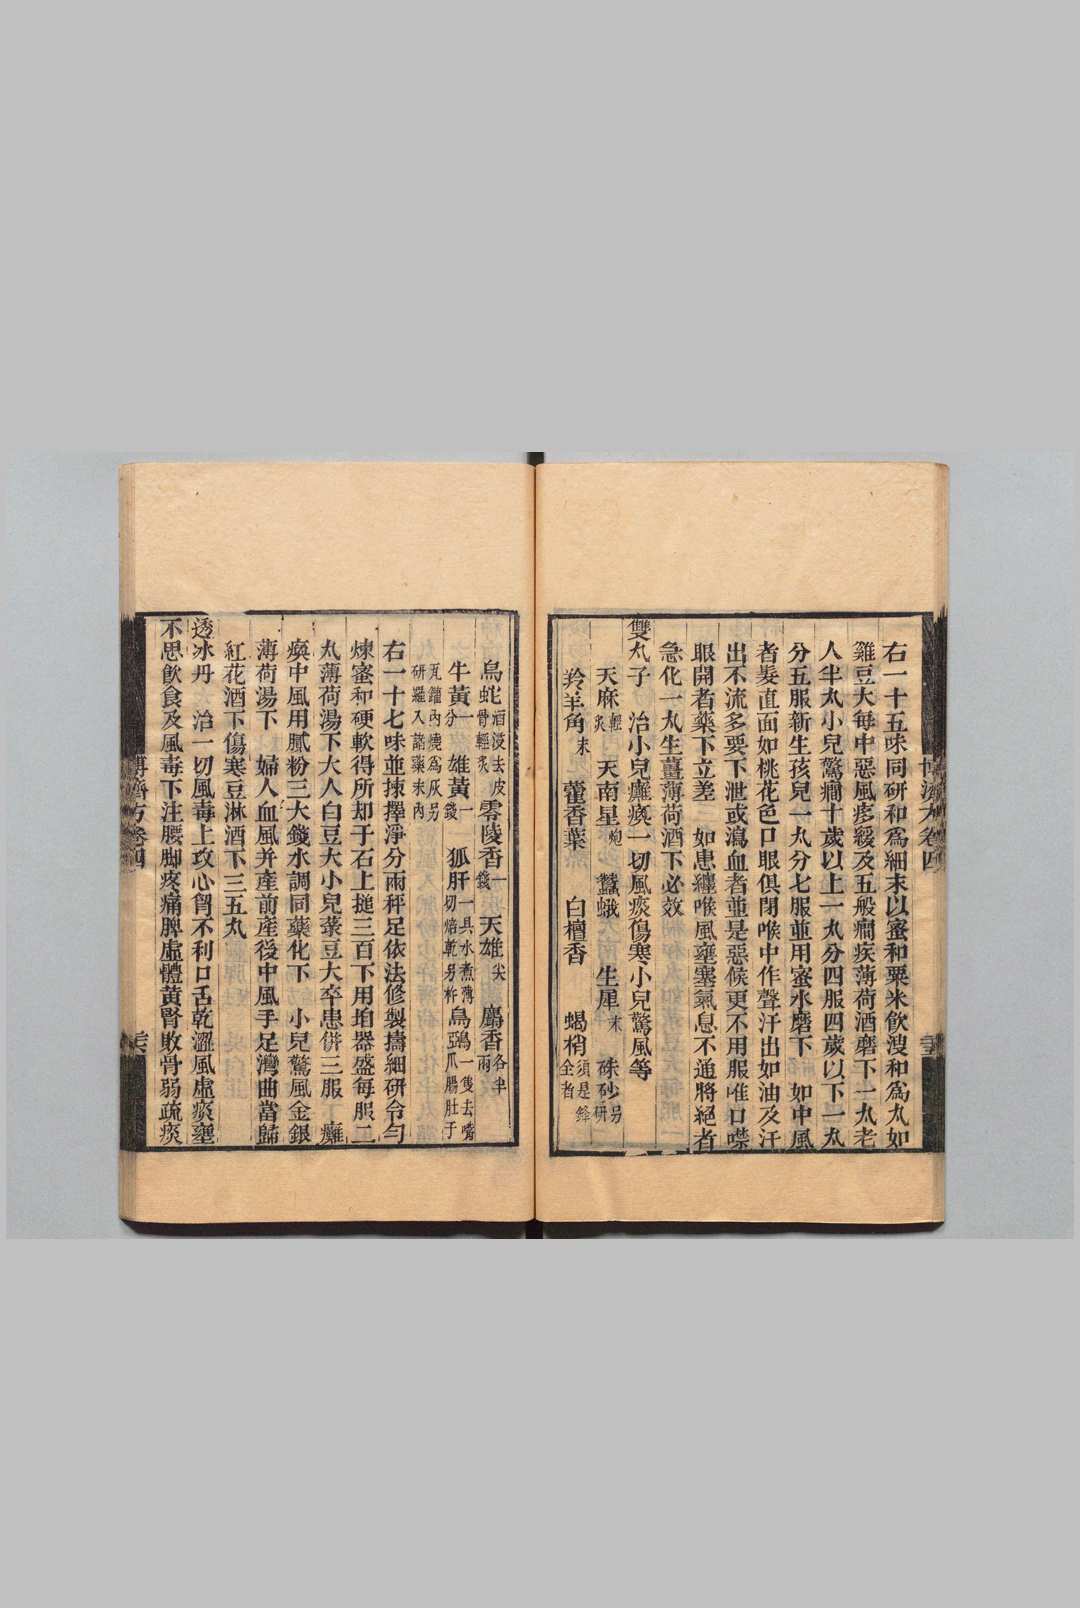 右一十五味同研和爲細末以蜜和粟米飲溲和爲丸如
雞豆大每中惡風疼緩及五般癎疾薄荷酒磨下一丸老
人半丸小兒驚癎十歲以上一丸分四服四歲以下一丸
分五服新生孩兒一丸分七服並用蜜水磨下 如中風
者髮直面如桃花色口眼俱閉喉中作聲汗出如油及汗
出不流多要下泄或瀉血者並是惡候更不用服唯口噤
眼開者藥下立差 如患纏喉風壅塞氣息不通將絕者
急化一丸生薑薄荷酒下必效
雙丸子 治小兒癱瘓一切風痰傷寒小兒驚風等
天麻輕炙 天南星炮 蠶蛾 生犀末 硃砂另研
羚羊角末 藿香葉 白檀香 蝎梢須是鋒全者
博濟方卷四
烏蛇酒浸去皮蛇骨輕炙 零陵香一錢 天雄尖 麝香各半兩
牛黃一分 雄黃一錢 狐肝一具水煮薄切焙乾另杵 烏鴉一隻去嘴爪腸肚于
瓦罐內燒爲灰另研羅入諸藥末內
右一十七味並揀擇淨分兩秤足依法修製擣細研令勻
煉蜜和硬軟得所却于石上搥三百下用垍器盛每服二
丸薄荷湯下大人白豆大小兒菉豆大卒患併三服 癱
瘓中風用膩粉三大錢水調同藥化下 小兒驚風金銀
薄荷湯下 婦人血風并產前產後中風手足灣曲當歸
紅花酒下傷寒豆淋酒下三五丸
透冰丹 治一切風毒上攻心胷不利口舌乾澀風虛痰壅
不思飲食及風毒下注腰脚疼痛脾虛體黃腎敗骨弱疏痰
博濟方卷四